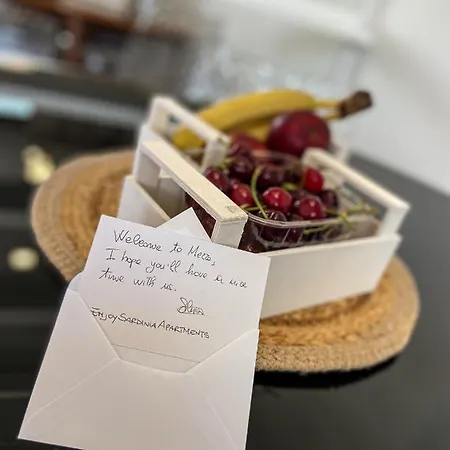 Welcome to Mera,
I hope you'll have a nice
time with us.
Enjoy Sardinia Apartments